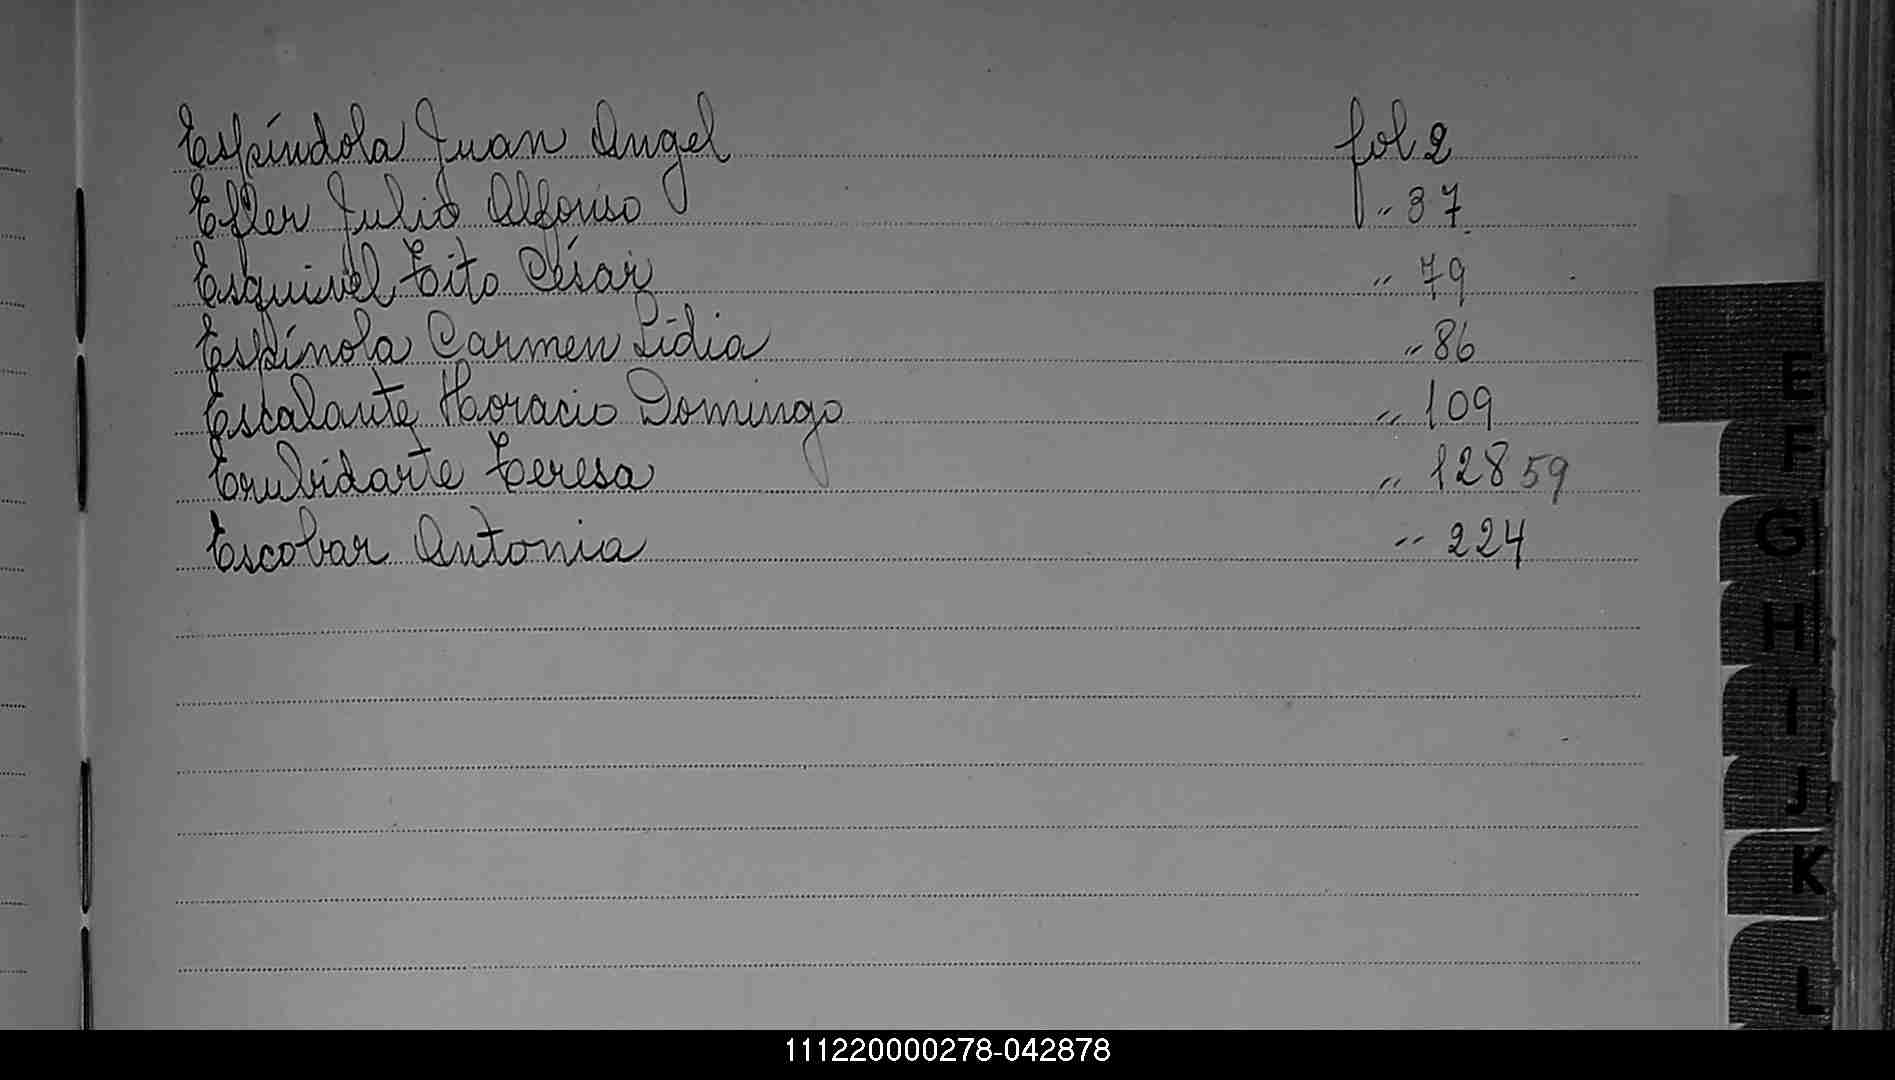 Espíndola Juan Angel fol 2
Efler Julio Alfonso " 37
Esquivel Tito César " 79
Espínola Carmen Lidia " 86
Escalante Horacio Domingo " 109
Erubidarte Teresa " 128 59
Escobar Antonia " 224
E
F
G
H
I
J
K
L
111220000278-042878